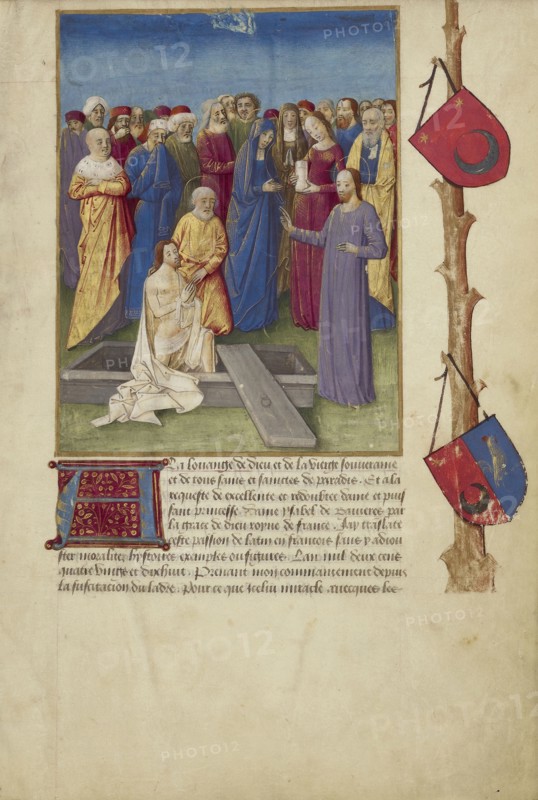 A la louange de dieu et de la vierge souveraine
et de tous sains et sainctes de paradis. Et a la
requeste de excellente et redoubtee dame et puis
sant princesse Dame ysabel de Bavieres par
la grace de dieu royne de france. Jay translate
ceste passion de latin en francois sans y adiou
ster moralitez hystoires exemples ou figures. Lan mil deux cens
quatre vingts et dixhuit. Prenant mon commancement depuis
la suscitacion du ladre. Pource que icelui miracle avecques les
PHOTO12